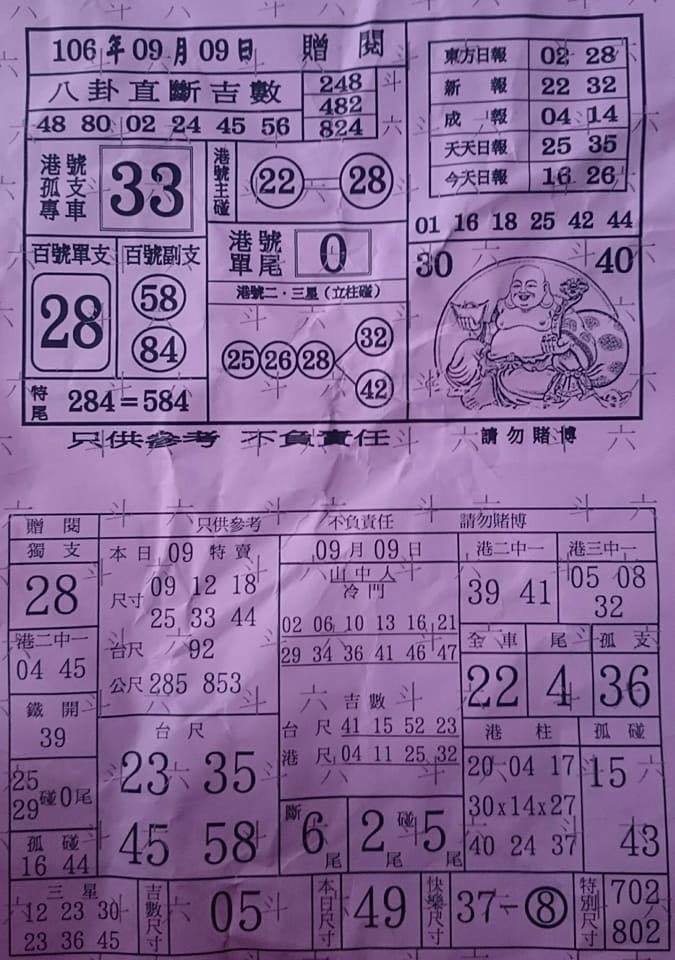 106年09月09日 贈閱
八卦直斷吉數
248
482
824
48 80 02 24 45 56
港號孤支專車
33
港號主碰
22 28
百號單支
28
百號副支
58
84
港號單尾
0
港號二·三星(立柱碰)
25 26 28
32
42
特尾
284=584
東方日報 02 28
新報 22 32
成報 04 14
天天日報 25 35
今天日報 16 26
01 16 18 25 42 44
30 40
只供參考 不負責任 請勿賭博
贈閱 只供參考 不負責任 請勿賭博
獨支
28
港二中一
04 45
鐵開
39
25
29
碰0尾
孤碰
16 44
本日09特賣
尺寸
09 12 18
25 33 44
台尺 92
公尺 285 853
台尺
23 35
45 58
09月09日
山中人
冷門
02 06 10 13 16 21
29 34 36 41 46 47
吉數
台尺 41 15 52 23
港尺 04 11 25 32
斷6尾
2尾碰5尾
港二中一
39 41
港三中一
05 08
32
全車
22
尾
4
孤支
36
港柱
20 04 17
30x14x27
40 24 37
孤碰
15
43
三星
12 23 30
23 36 45
吉數尺寸
05
本日尺寸
49
快樂尺寸
37-8
特別尺寸
702
802
六 斗